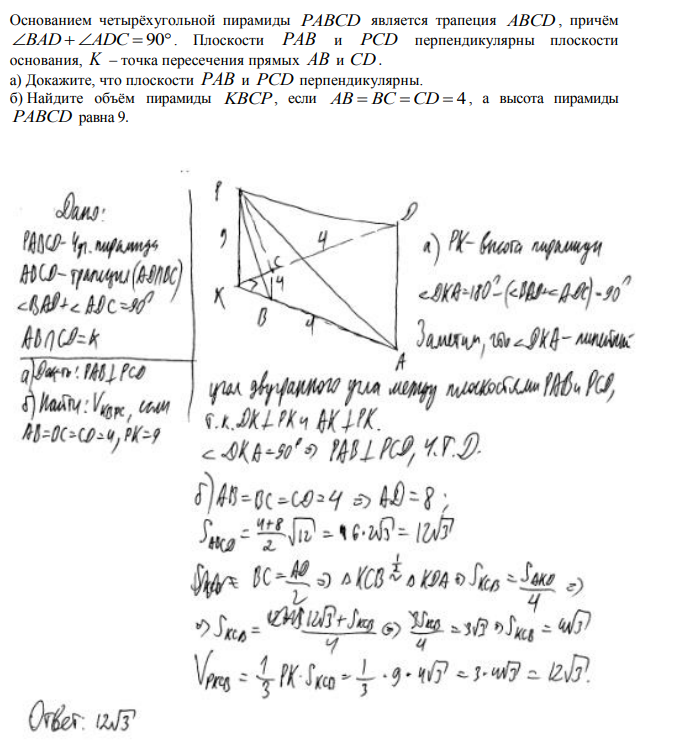 Основанием четырёхугольной пирамиды PABCD является трапеция ABCD, причём
∠BAD+∠ADC=90°. Плоскости PAB и PCD перпендикулярны плоскости
основания, K – точка пересечения прямых AB и CD.
а) Докажите, что плоскости PAB и PCD перпендикулярны.
б) Найдите объём пирамиды KBCP, если AB=BC=CD=4, а высота пирамиды
PABCD равна 9.
Дано:
PABCD- 4уг. пирамида
ABCD-трапеция(AD∩BC)
∠BAD+∠ADC=90°
AB∩CD=K
а)Док-ть: PAB⊥PCD
б) Найти: V, если
AB=BC=CD=4, PK=9
P
D
9
4
C
K
4
B
4
A
а) PK-высота пирамиды
∠DKA=180°-(∠BAD+∠ADC)=90°
Заметим, что ∠DKA-линейный
угол двугранного угла между плоскостями PAB и PCD,
т.к. DK⊥PK и AK⊥PK.
∠DKA=90° ⇒ PAB⊥PCD, ч.т.д.
б) AB=BC=CD=4 ⇒ AD=8;
S_ABCD = (4+8)/2 √12 = 6·2√3 = 12√3
BC = AD/2 ⇒ △KCB ~ △KDA ⇒ S_KCB = S_AKD/4 ⇒
⇒ S_KCB = (12√3+S_KCB)/4 ⇒ 3S_KCB/4 = 3√3 ⇒ S_KCB = 4√3
V_PKCB = 1/3 PK·S_KCB = 1/3 · 9 · 4√3 = 3·4√3 = 12√3.
Ответ: 12√3